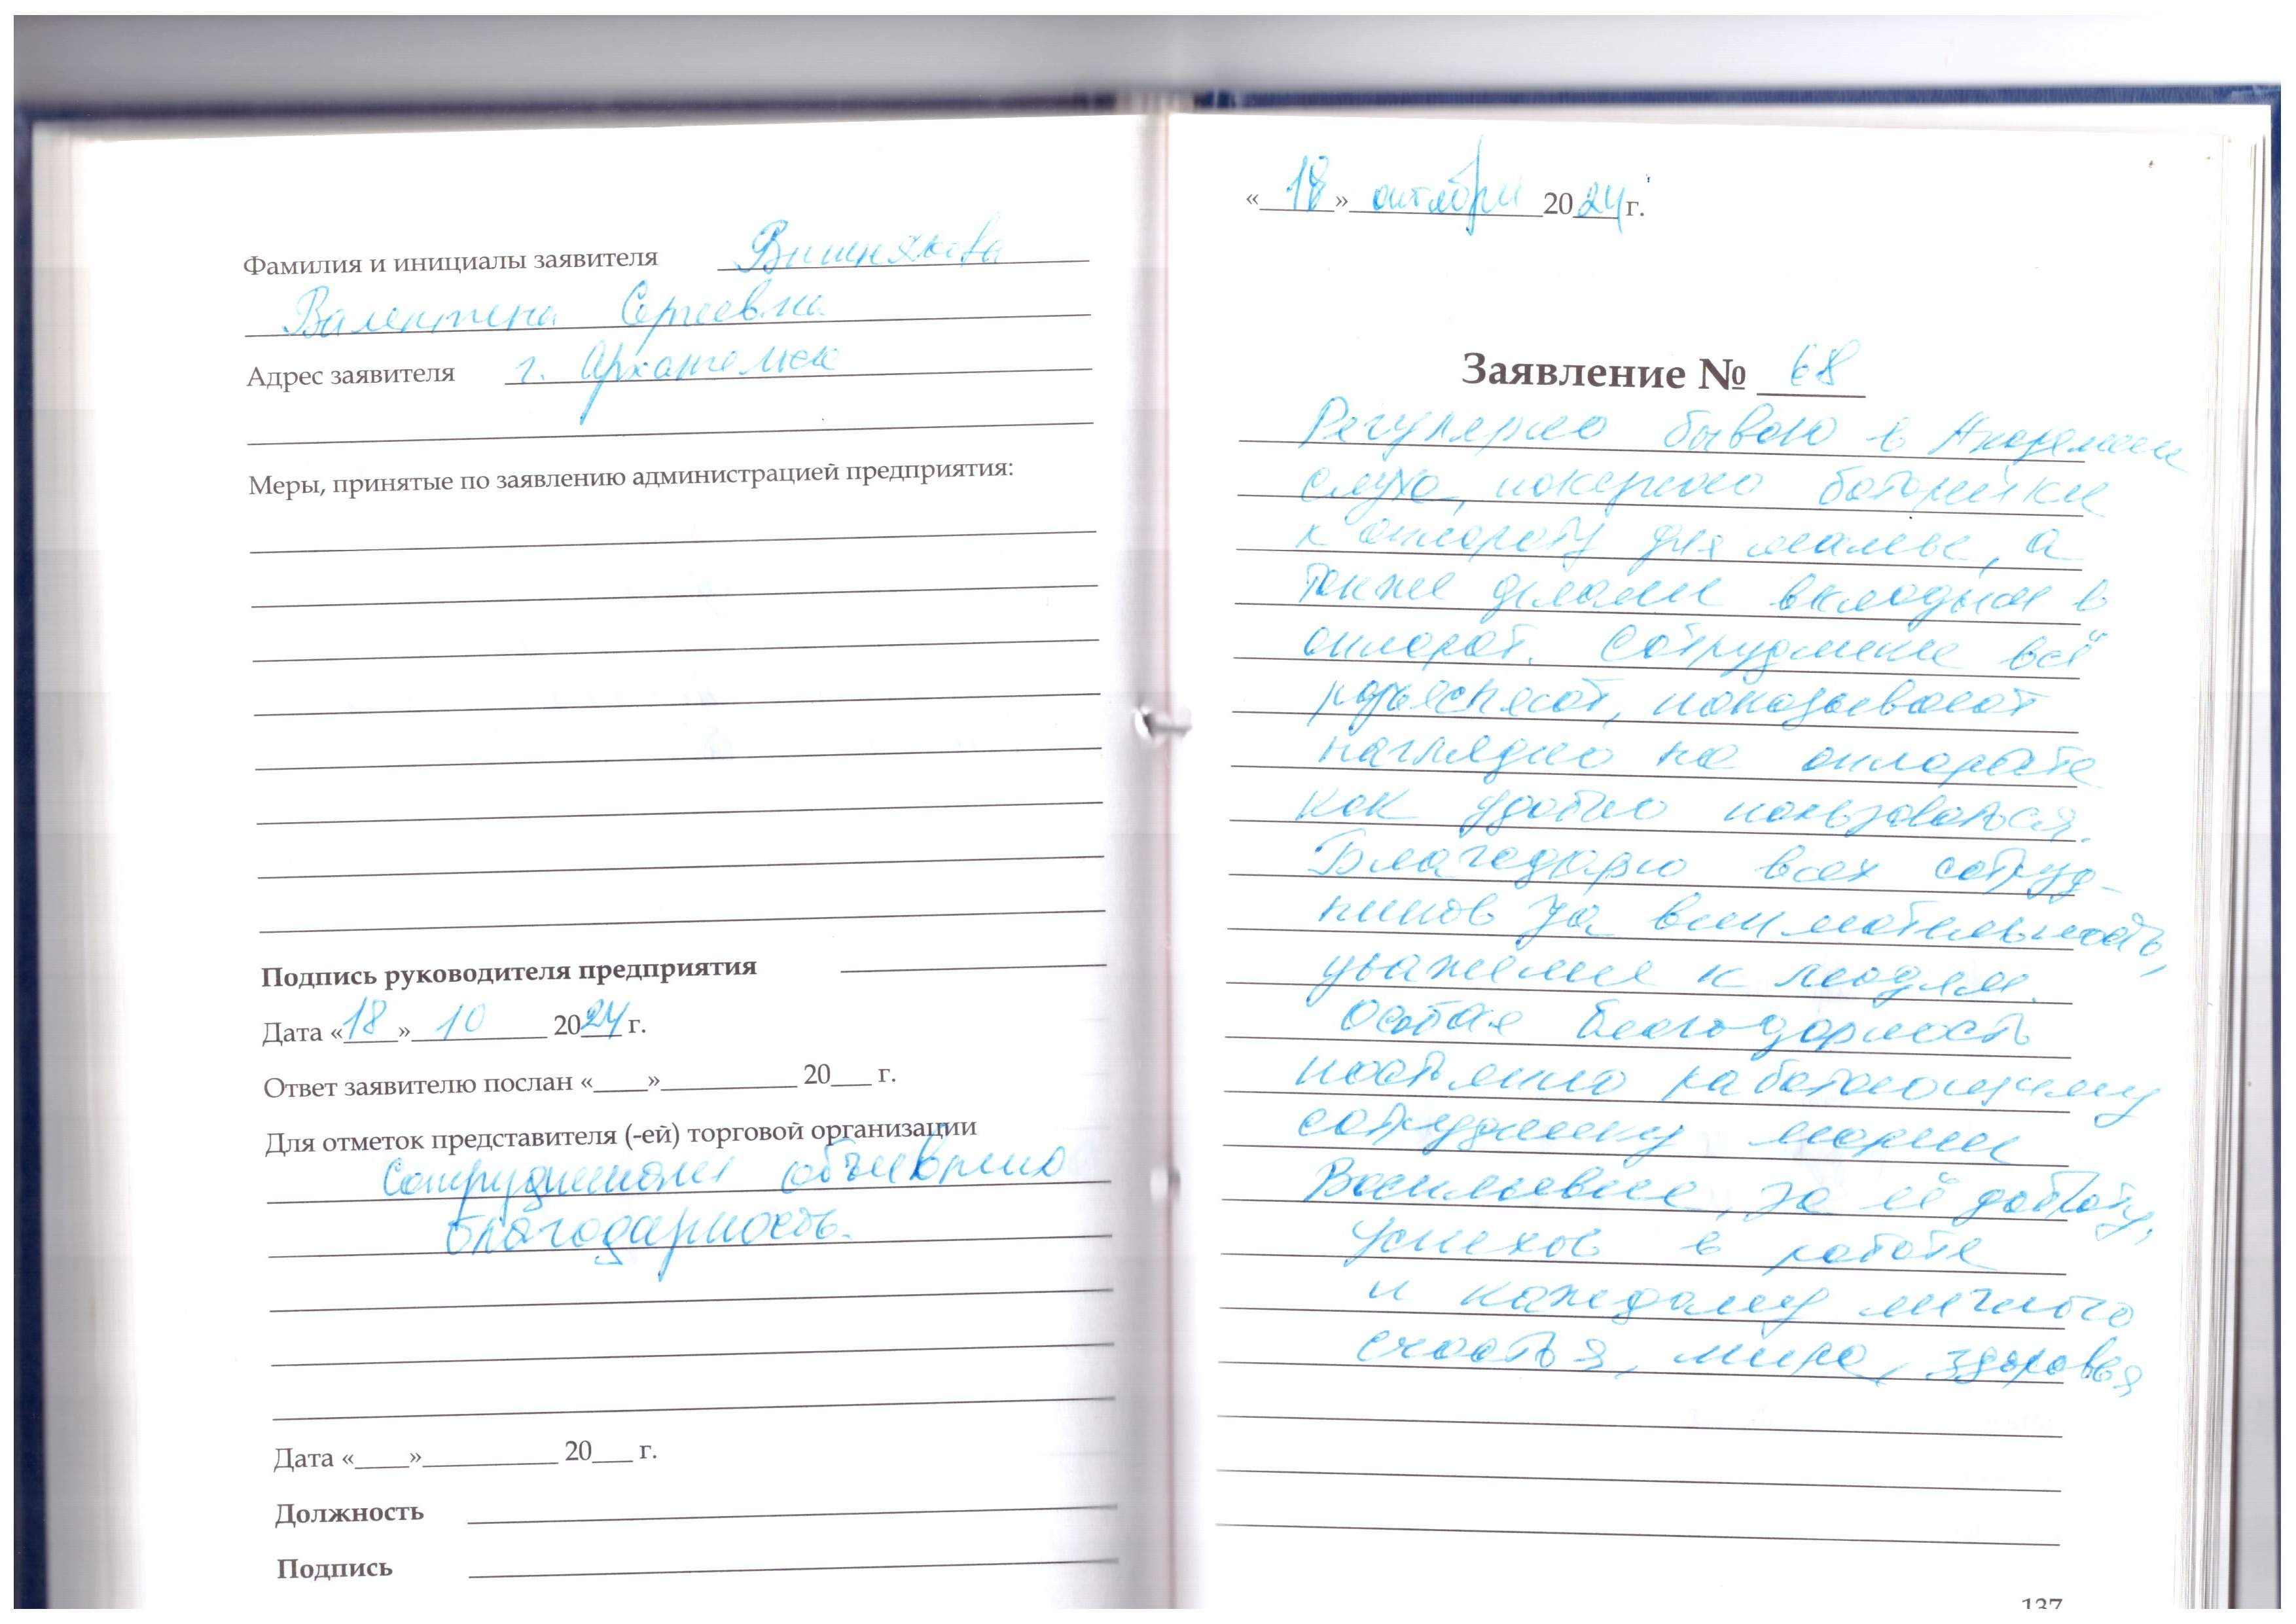 Фамилия и инициалы заявителя Вишнякова
Валентина Сергеевна
Адрес заявителя г. Архангельск
Меры, принятые по заявлению администрацией предприятия:
Подпись руководителя предприятия
Дата «18» 10 2024 г.
Ответ заявителю послан «____»__________ 20___ г.
Для отметок представителя (-ей) торговой организации
Сотрудникам объявлена
благодарность.
Дата «____»__________ 20___ г.
Должность
Подпись
«18» октября 2024 г.
Заявление № 68
Регулярно бываю в Академии
слуха, покупаю батарейки
к аппарату для мамы, а
также делали вкладыш в
аппарат. Сотрудники всё
разъясняют, показывают
наглядно на аппарате
как удобно пользоваться.
Благодарю всех сотруд-
ников за внимательность,
уважение к людям.
Особая благодарность
постоянно работающему
сотруднику Марии
Васильевне, за её доброту,
успехов в работе
и каждому личного
счастья, мира, здоровья
137